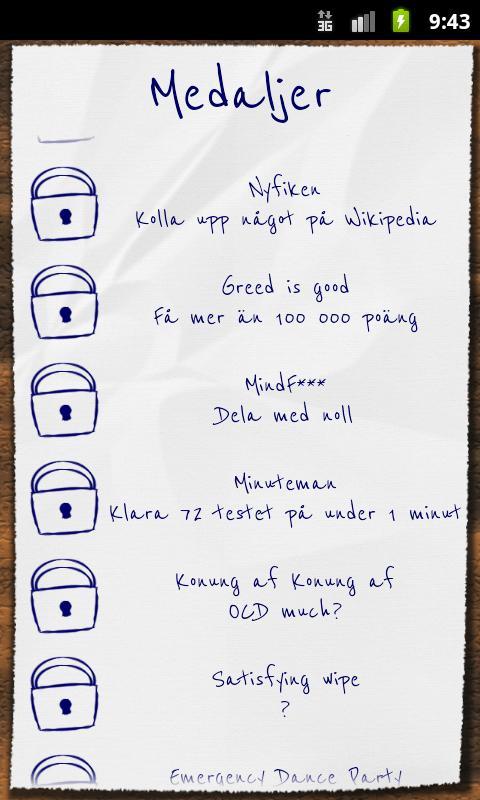 3G
9:43
Medaljer
Nyfiken
Kolla upp något på Wikipedia
Greed is good
Få mer än 100 000 poäng
MindF***
Dela med noll
Minuteman
Klara 72 testet på under 1 minut
Konung af Konung af
OCD much?
Satisfying wipe
?
Emergency Dance Party